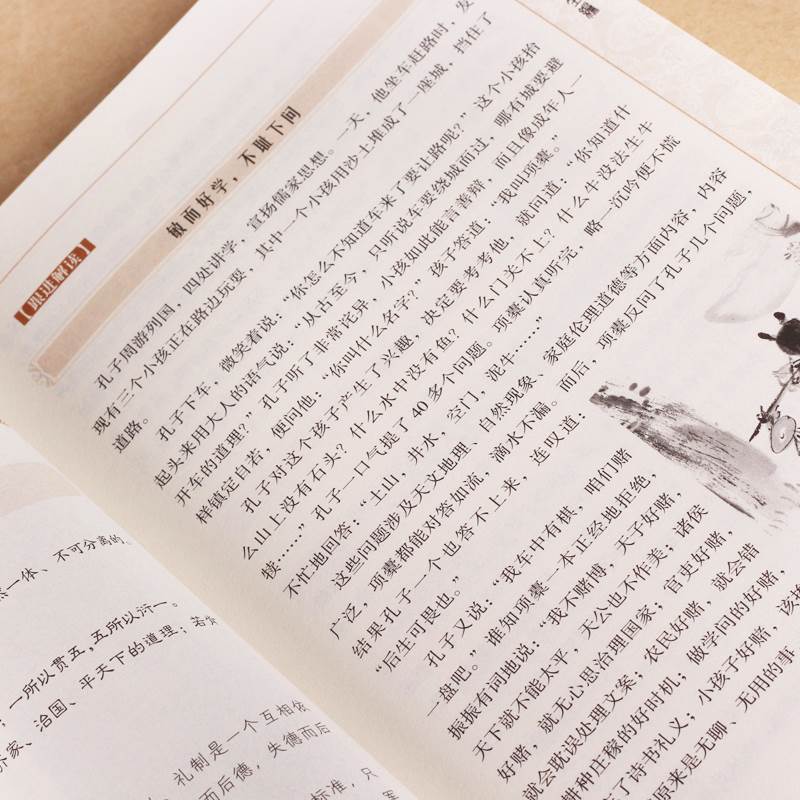 然一体、不可分离的、
；一所以贯五，五所以衍一。
齐家、治国、平天下的道理；若
、礼制是一个互相依
而后德，失德而后
标准，只
全编
【跟进解读】
敏而好学，不耻下问
孔子周游列国，四处讲学，宣扬儒家思想。一天，他坐车赶路时，发
现有三个小孩正在路边玩耍，其中一个小孩用沙土堆成了一座城，挡住了
道路。
孔子下车，微笑着说：“你怎么不知道车来了要让路呢？”这个小孩抬
起头来用大人的语气说：“从古至今，只听说车要绕城而过，哪有城要避
开车的道理？”孔子听了非常诧异，小孩如此能言善辩，而且像成年人一
样镇定自若，便问他：“你叫什么名字？”孩子答道：“我叫项橐。”
孔子对这个孩子产生了兴趣，决定要考考他，就问道：“你知道什
么山上没有石头？什么水中没有鱼？什么门关不上？什么牛没法生牛
犊……”孔子一口气提了40多个问题。项橐认真听完，略一沉吟便不慌
不忙地回答：“土山，井水，空门，泥牛……”
这些问题涉及天文地理、自然现象、家庭伦理道德等方面内容，内容
广泛，项橐都能对答如流，滴水不漏。而后，项橐反问了孔子几个问题，
结果孔子一个也答不上来，连叹道：
“后生可畏也。”
孔子又说：“我车中有棋，咱们赌
一盘吧。”谁知项橐一本正经地拒绝，
振振有词地说：“我不赌博，天子好赌，
天下就不能太平，天公也不作美；诸侯
好赌，就无心思治理国家；官吏好赌，
就会耽误处理文案；农民好赌，就会错
耕种庄稼的好时机；做学问的好赌，
了诗书礼义；小孩子好赌，该挨
原来是无聊、无用的事，